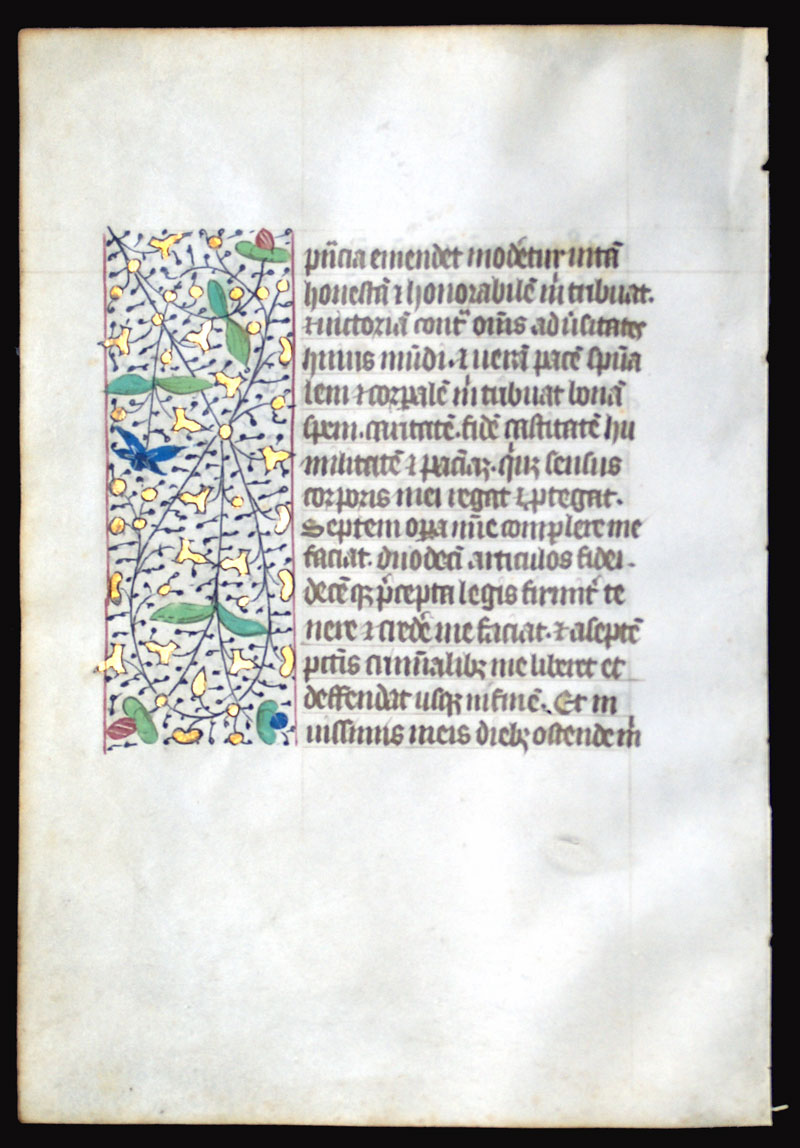 pn̄cia emendet modet᷑ur uitā
honestā ⁊ honorabilē m̍ tribuat.
⁊ uictoriā cont᷑ om̄s aduˀsitates
huius mūdi. ⁊ uerā pacē sp̄ua
lem ⁊ corp̲alē m̍ tribuat bonā
spem. caritatē. fidē castitatē hu
militatē ⁊ paciāz. qˀnqꝫ sensus
corporis mei regat ⁊ ꝓtegat.
Septem oꝑa mīe complere me
faciat. duodecī articulos fidei.
decēqꝫ p̍cepta legis firmit᷑ te
nere ⁊ credˀe me faciat. ⁊ a septē
pctīs criminalibꝫ me liberet et
deffendat usqꝫ in finē. Et in
nouissimis meis diebꝫ ostende m̍